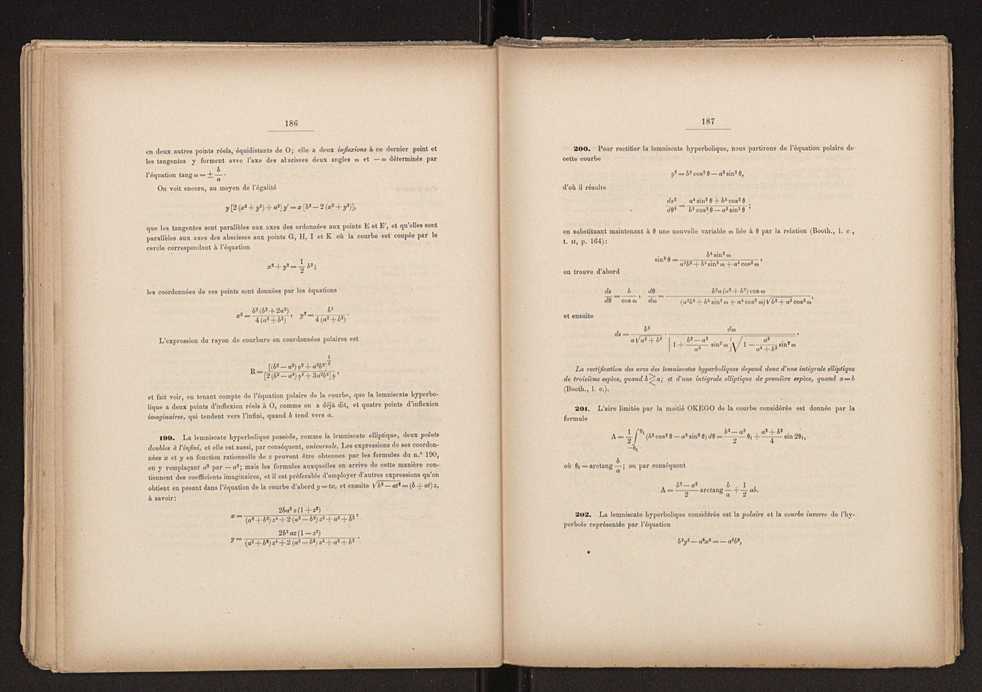 186
en deux autres points réels, équidistants de O; elle a deux inflexions à ce dernier point et
les tangentes y forment avec l'axe des abscisses deux angles ω et — ω déterminés par
l'équation tang ω = ± b/a.
On voit encore, au moyen de l'égalité
y [2 (x² + y²) + a²] y' = x [b² — 2 (x² + y²)],
que les tangentes sont parallèles aux axes des ordonnées aux points E et E', et qu'elles sont
parallèles aux axes des abscisses aux points G, H, I et K où la courbe est coupée par le
cercle correspondant à l'équation
x² + y² = 1/2 b²;
les coordonnées de ces points sont données par les équations
x² = b² (b² + 2a²) / 4 (a² + b²), y² = b⁴ / 4 (a² + b²).
L'expression du rayon de courbure en coordonnées polaires est
R = [(b² — a²) ρ² + a²b²]^(3/2) / [2 (b² — a²) ρ² + 3a²b²] ρ,
et fait voir, en tenant compte de l'équation polaire de la courbe, que la lemniscate hyperbo-
lique a deux points d'inflexion réels à O, comme on a déjà dit, et quatre points d'inflexion
imaginaires, qui tendent vers l'infini, quand b tend vers a.
199. La lemniscate hyperbolique possède, comme la lemniscate elliptique, deux points
doubles à l'infini, et elle est aussi, par conséquent, unicursale. Les expressions de ses coordon-
nées x et y en fonction rationnelle de z peuvent être obtenues par les formules du n.º 190,
en y remplaçant a² par — a²; mais les formules auxquelles on arrive de cette manière con-
tiennent des coefficients imaginaires, et il est préférable d'employer d'autres expressions qu'on
obtient en posant dans l'équation de la courbe d'abord y = tx, et ensuite √(b² — at²) = (b + at) z,
à savoir:
x = 2ba² z (1 + z²) / (a² + b²) z⁴ + 2 (a² — b²) z² + a² + b²,
y = 2b² az (1 — z²) / (a² + b²) z⁴ + 2 (a² — b²) z² + a² + b².
187
200. Pour rectifier la lemniscate hyperbolique, nous partirons de l'équation polaire de
cette courbe
ρ² = b² cos² θ — a² sin² θ,
d'où il résulte
ds²/dθ² = a⁴ sin² θ + b⁴ cos² θ / b² cos² θ — a² sin² θ;
en substituant maintenant à θ une nouvelle variable ω liée à θ par la relation (Booth., l. c.,
t. II, p. 164):
sin² θ = b⁴ sin² ω / a²b² + b⁴ sin² ω + a⁴ cos² ω,
on trouve d'abord
ds/dθ = b / cos ω, dθ/dω = b²a (a² + b²) cos ω / (a²b² + b⁴ sin² ω + a⁴ cos² ω) √(b² + a² cos² ω),
et ensuite
ds = b³ / a√(a² + b²) · dω / [1 + b² — a² / a² sin² ω] √(1 — a² / a² + b² sin² ω).
La rectification des arcs des lemniscates hyperboliques depend donc d'une intégrale elliptique
de troisième espèce, quand b ≷ a; et d'une intégrale elliptique de première espèce, quand a = b
(Booth., l. c.).
201. L'aire limitée par la moitié OKEGO de la courbe considérée est donnée par la
formule
A = 1/2 ∫_{—θ₁}^{θ₁} (b² cos² θ — a² sin² θ) dθ = b² — a² / 2 θ₁ + a² + b² / 4 sin 2θ₁,
où θ₁ = arctang b/a; ou par conséquent
A = b² — a² / 2 arctang b/a + 1/2 ab.
202. La lemniscate hyperbolique considérée est la polaire et la courbe inverse de l'hy-
perbole représentée par l'équation
b²y² — a²x² = — a²b²,